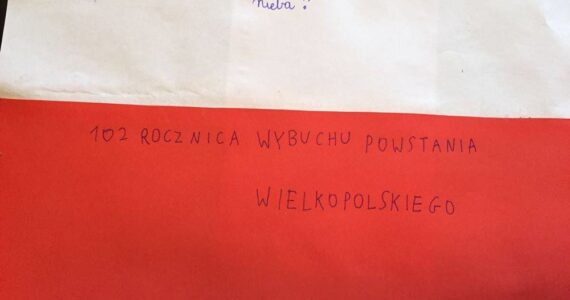 nieba!
102 ROCZNICA WYBUCHU POWSTANIA
WIELKOPOLSKIEGO